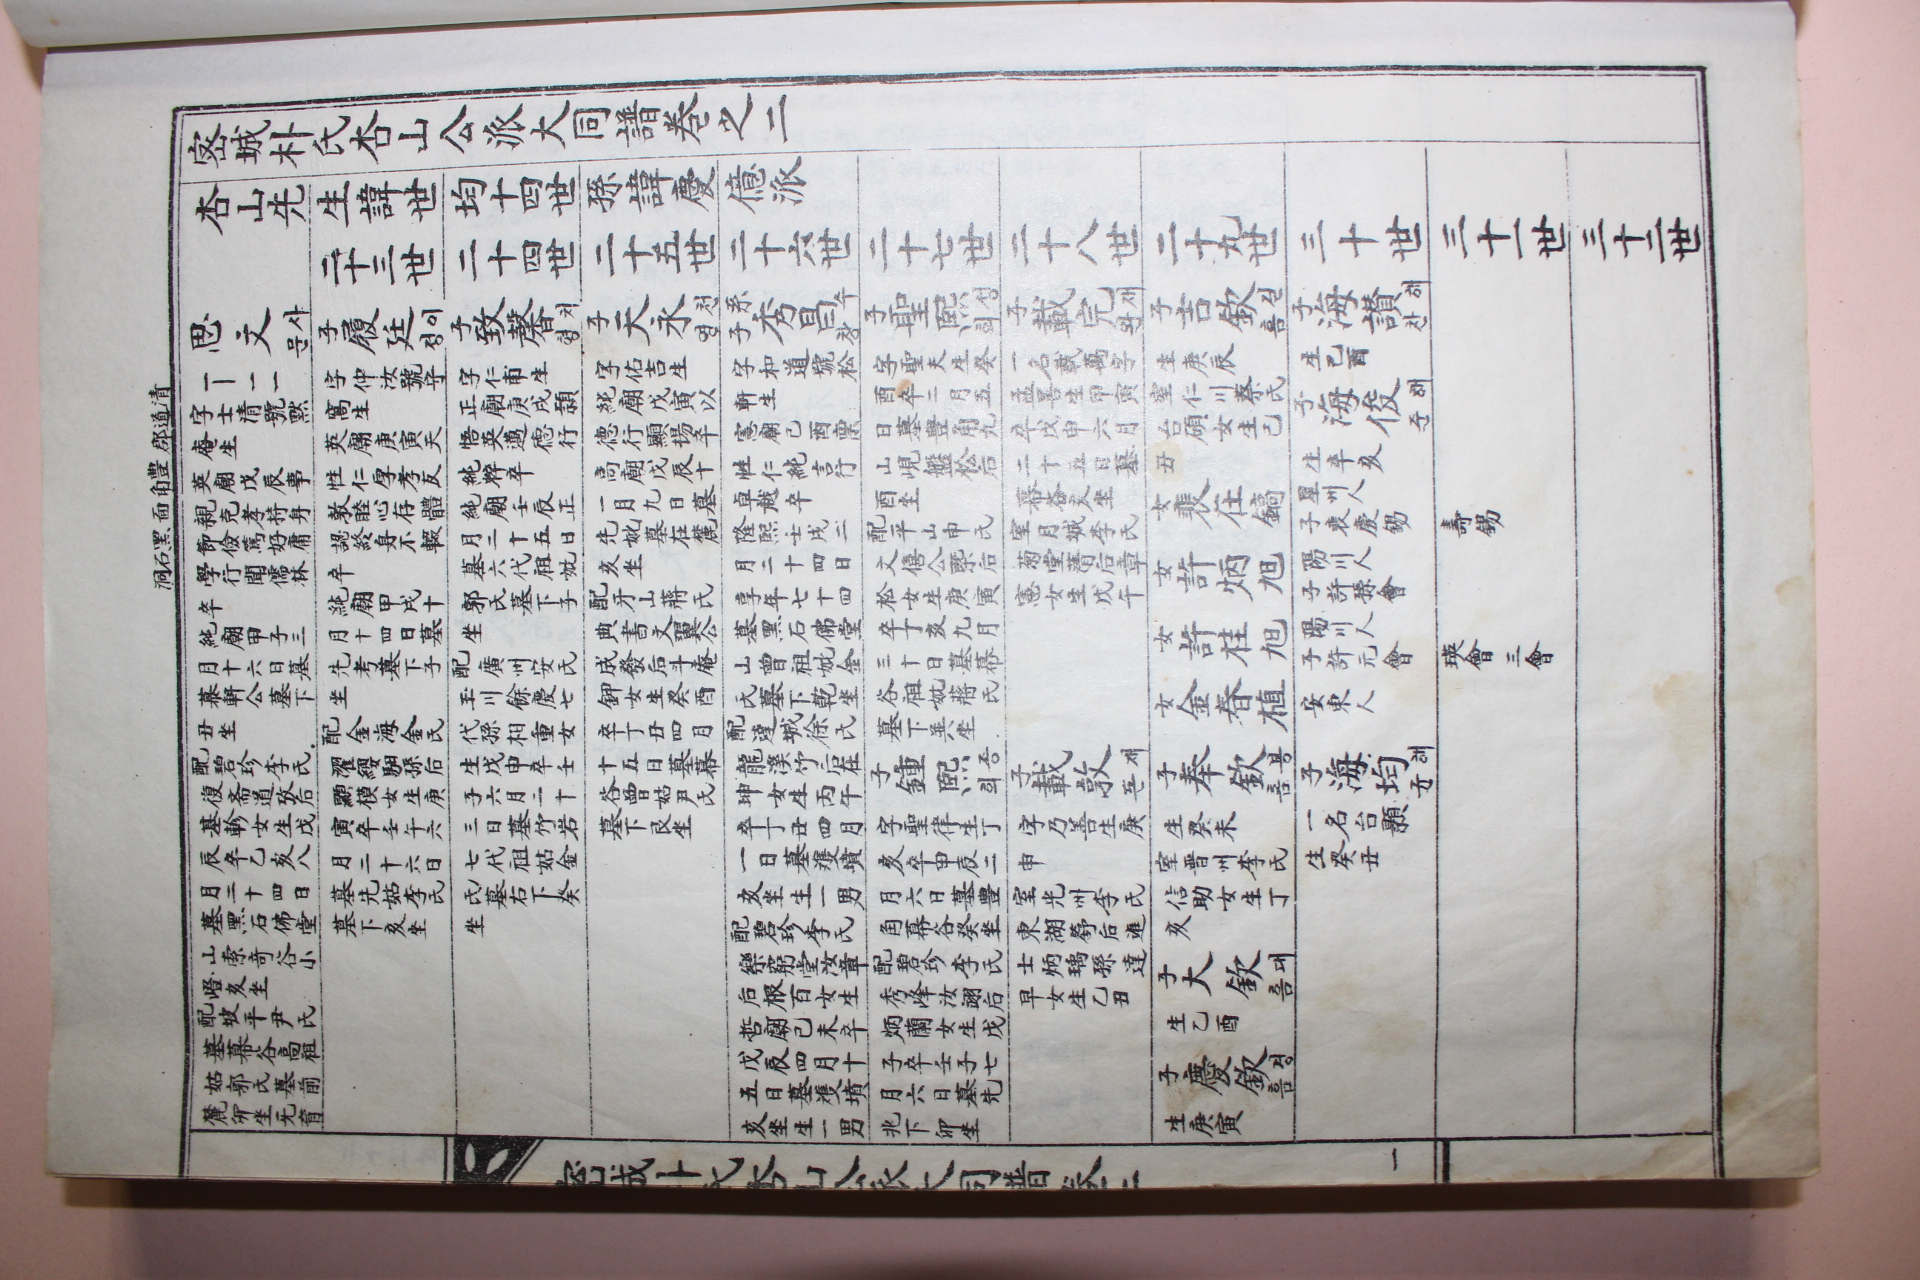 清道郡豊角面黑石洞
密城朴氏杏山公派大同譜卷之二
杏山先生諱世均十四世孫諱慶億派
二十三世
二十四世
二十五世
二十六世
二十七世
二十八世
二十九世
三十世
三十一世
三十二世
思文 사문
一一一一
字士清號默
庵生
英廟戊辰事
親克孝持身
節儉篤好庸
學行聞儒林
卒
純廟甲子三
月十六日墓
慕軒公墓下
丑坐
配碧珍李氏
復斋道攷后
基軫女生戊
辰卒乙亥八
月二十四日
墓黑石佛堂
山索奇谷小
嶝亥坐
配坡平尹氏
墓幕谷高祖
姑郭氏墓前
麓卯坐无育
子履廷 이정
字仲汝號守
窩生
英廟庚寅天
性仁厚孝友
敦睦心存體
認終身不輟
卒
純廟甲戌十
月十四日墓
先考墓下子
坐
配金海金氏
濯纓馹孫后
顯模女生庚
寅卒壬午六
月二十六日
墓先姑李氏
墓下亥坐
子致馨 치형
字仁甫生
正廟庚戌頴
悟英邁德行
純粹卒
純廟壬辰正
月二十五日
墓六代祖妣
郭氏墓下子
坐
配廣州安氏
玉川餘慶七
代孫相重女
生戊申卒壬
子六月二十
三日墓竹岩
七代祖姑金
氏墓右下癸
坐
子天永 천영
字佑吉生
純廟戊寅以
德行顯揚卒
高廟戊辰十
一月九日墓
先妣墓在麓
亥坐
配牙山蔣氏
典書文翼公
成發后斗庵
鉀女生癸酉
卒丁丑四月
十五日墓幕
谷曾姑尹氏
墓下艮坐
系子秀昌 수창
字和道號松
軒生
憲廟己酉禀
性仁純言行
卓越卒
隆熙壬戌二
月二十四日
享年七十四
墓黑石佛堂
山曾祖妣金
氏墓下乾坐
配達城徐氏
龍溪竹后在
坤女生丙午
卒丁丑四月
一日墓䨇墳
亥坐生一男
配碧珍李氏
樂窮堂汝章
后根百女生
哲廟己未卒
戊辰四月十
五日墓䨇墳
亥坐生一男
子聖熙 성희
字聖夫生癸
酉卒二月五
日墓豊角九
山峴盤松后
酉坐
配平山申氏
文僖公槩后
松女生庚寅
卒丁亥九月
三十日墓幕
谷祖妣蔣氏
墓下並坐
子鍾熙 종희
字聖律生丁
亥卒甲辰二
月六日墓豊
角幕谷癸坐
配碧珍李氏
秀峰汝翊后
炳蘭女生戊
子卒壬子七
月六日墓先
兆下卯坐
子載完 재완
一名載萬字
孟善生甲寅
卒戊申六月
二十五日墓
幕谷亥坐
室月城李氏
菊堂蒨后章
憲女生戊午
子載敦 재돈
字乃善生庚
申
室光州李氏
東湖䇹后進
士炳瑀孫達
早女生乙丑
子吉欽 길흠
生庚辰
室仁川蔡氏
台碩女生己
丑
女裵在鎬
女許炳旭
女許桂旭
女金春植
子奉欽 봉흠
生癸未
室晋州李氏
信助女生丁
亥
子大欽 대흠
生乙酉
子慶欽 경흠
生庚寅
子海讃 해찬
生己酉
子海俊 해준
生辛亥
星州人
子裵慶錫
陽川人
子許孫會
陽川人
子許元會
安東人
子海均 해균
一名台顯
生癸丑
壽錫
瑛會 三會
密城朴氏杏山公派大同譜卷二
一